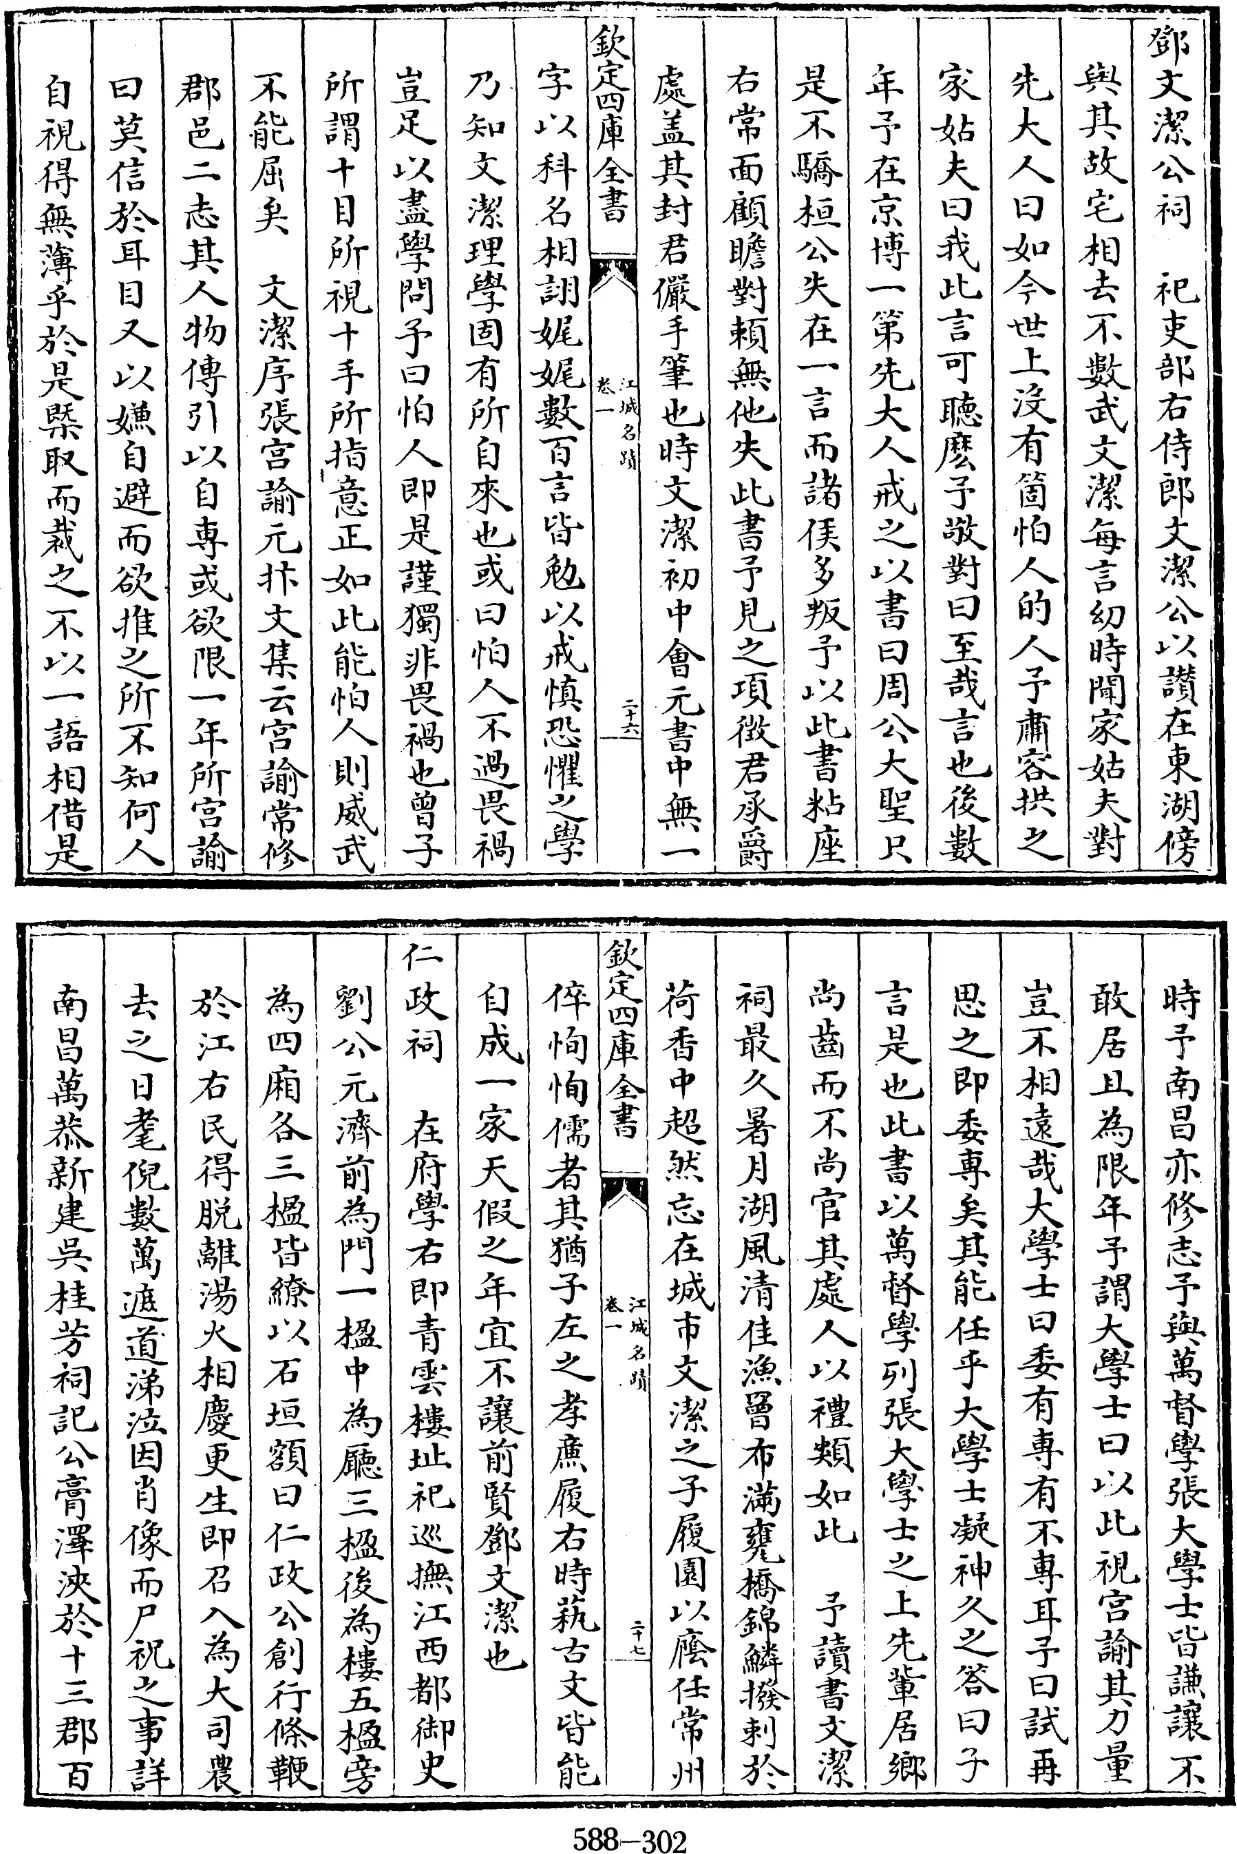 鄧文潔公祠　祀吏部右侍郎文潔公以讃在東湖傍
與其故宅相去不數武文潔每言幼時聞家姑夫對
先大人曰如今世上沒有箇怕人的人予肅容拱之
家姑夫曰我此言可聽麽予敬對曰至哉言也後數
年予在京博一第先大人戒之以書曰周公大聖只
是不驕桓公失在一言而諸侯多叛予以此書粘座
右常面顧瞻對賴無他失此書予見之項徵君承爵
處盖其封君儼手筆也時文潔初中會元書中無一
欽定四庫全書
江城名蹟
卷一
二十六
字以科名相詡娓娓數百言皆勉以戒慎恐懼之學
乃知文潔理學固有所自來也或曰怕人不過畏禍
豈足以盡學問予曰怕人即是謹獨非畏禍也曾子
所謂十目所視十手所指意正如此能怕人則威武
不能屈矣　文潔序張宫諭元忭文集云宫諭常修
郡邑二志其人物傳引以自専或欲限一年所宫諭
曰莫信於耳目又以嫌自避而欲推之所不知何人
自視得無薄乎於是槩取而裁之不以一語相借是
時予南昌亦修志予與萬督學張大學士皆謙讓不
敢居且為限年予謂大學士曰以此視宫諭其力量
豈不相遠哉大學士曰委有專有不專耳予曰試再
思之即委專矣其能任乎大學士凝神久之答曰子
言是也此書以萬督學列張大學士之上先輩居鄉
尚齒而不尚官其處人以禮類如此　予讀書文潔
祠最久暑月湖風清佳漁罾布滿甕橋錦鱗撥剌於
荷香中超然忘在城市文潔之子履園以廕任常州
欽定四庫全書
江城名蹟
卷一
二十七
倅恂恂儒者其猶子左之孝廉履右時蓺古文皆能
自成一家天假之年宜不讓前賢鄧文潔也
仁政祠　在府學右即青雲樓址祀巡撫江西都御史
劉公元濟前為門一楹中為廳三楹後為樓五楹旁
為四廂各三楹皆繚以石垣額曰仁政公創行條鞭
於江右民得脱離湯火相慶更生即召入為大司農
去之日耄倪數萬遮道涕泣因肖像而尸祝之事詳
南昌萬恭新建吳桂芳祠記公膏澤浹於十三郡百
588-302